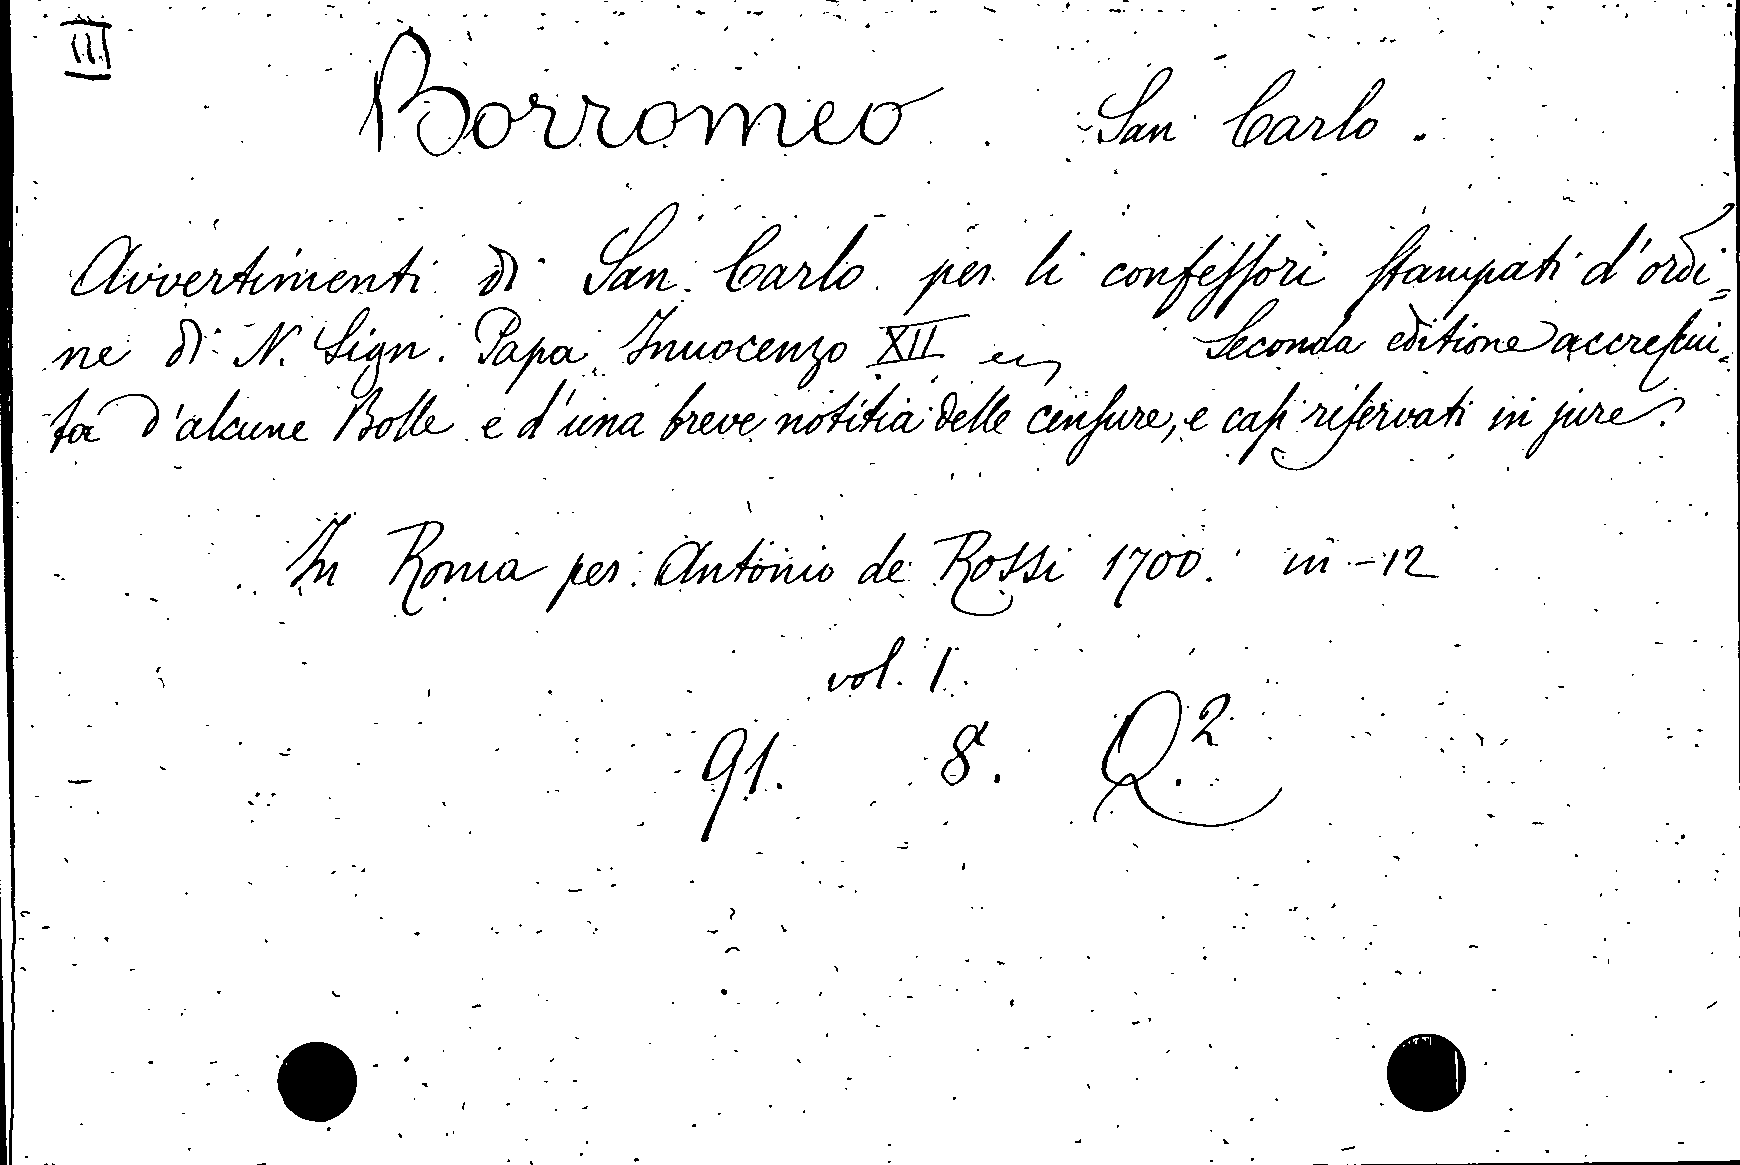 III
Borromeo San Carlo.
Avvertimenti di San Carlo per li confeſſori ſtampati d'ordi=
ne di N. Sign. Papa Innocenzo XII Seconda editione accreſcui=
ta d'alcune Bolle e d'una breve notitia delle cenſure, e caſi riſervati in jure.
In Roma per Antonio de Rossi 1700. in-12
vol. 1.
91. 8. Q.²